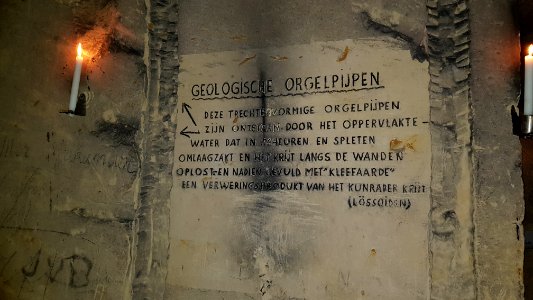 GEOLOGISCHE ORGELPIJPEN
DEZE TRECHTERVORMIGE ORGELPIJPEN
ZIJN ONTSTAAN DOOR HET OPPERVLAKTE-
WATER DAT IN SCHEUREN EN SPLETEN
OMLAAGZAKT EN HET KRIJT LANGS DE WANDEN
OPLOST EN NADIEN GEVULD MET "KLEEFAARDE"
EEN VERWERINGSPRODUKT VAN HET KUNRADER KRIJT
(LÖSSOÏDEN)